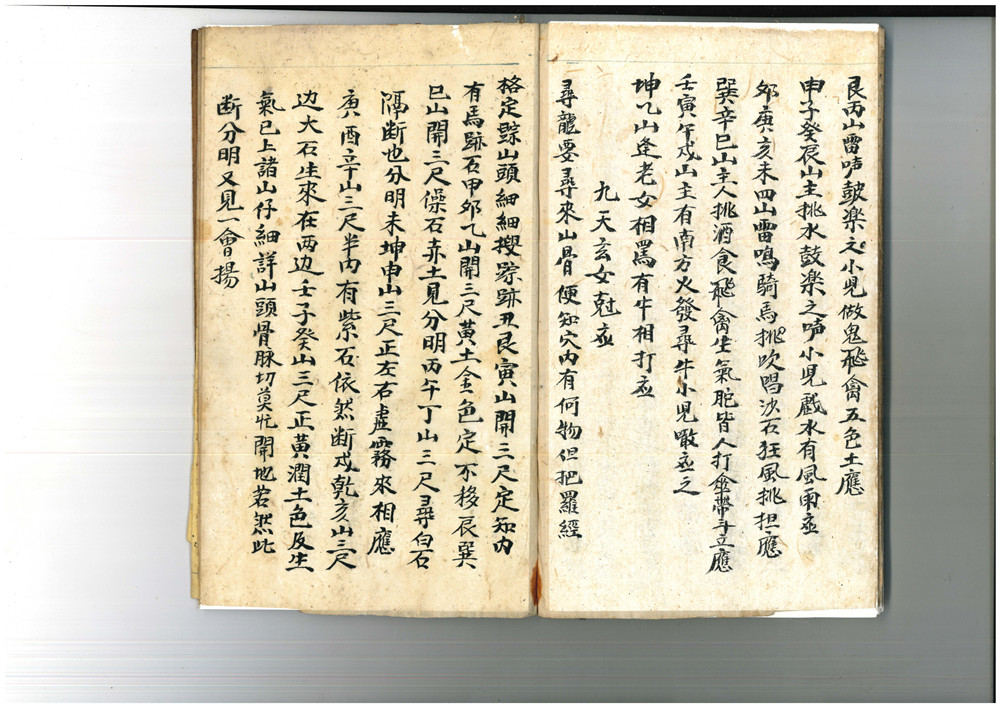 艮丙山雷声鼓楽之小児做鬼飛禽五色土應
申子癸辰山主挑水鼓楽之声小児戲水有風雨应
卯庚亥未四山雷鳴騎馬挑吹唱沙石狂風挑担應
巽辛巳山主人挑酒食飛禽生氣肥皆人打傘帶斗立應
壬寅午戌山主有南方火發尋牛小児歐应之
坤乙山逢老女相罵有牛相打应
九天玄女尅应
尋龍要尋來山骨便知穴内有何物但把羅經
格定踪山頭細細搜踪跡丑艮寅山開三尺定知内
有馬跡石甲卯乙山開三尺黃土金色定不移辰巽
巳山開三尺㒒石赤土見分明丙午丁山三尺尋白石
隔断也分明未坤申山三尺正左右虛霧來相應
庚酉辛山三尺半内有紫石依然断戌乾亥山三尺
边大石生來在两边壬子癸山三尺正黃潤土色及生
氣已上諸山仔細詳山頭骨脉切莫忙開地若然此
断分明又見一會揚